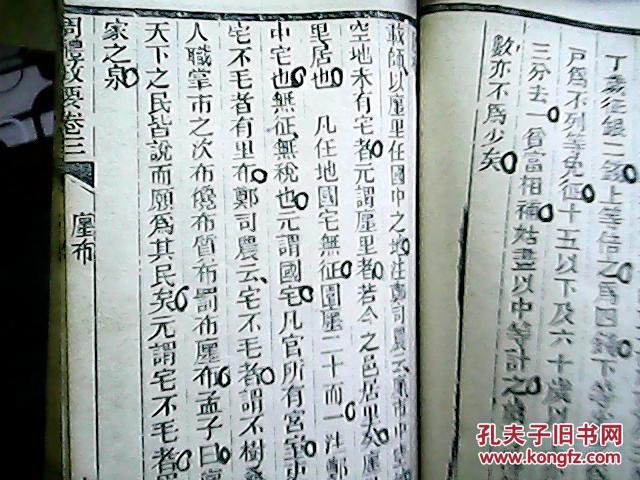 丁歲征銀二錢上等倍之爲四錢下等
戶爲不列等免征十五以下及六十歲以
三分去一貧富相補姑盡以中等計之
數亦不爲少矣
載師以廛里任國中之地注鄭司農云廛市中
空地未有宅者元謂廛里者若今之邑居里矣廛
里居也 凡任地國宅無征園廛二十而一注鄭
中宅也無征無稅也元謂國宅凡官所有宮室
宅不毛者有里布鄭司農云宅不毛者謂不樹
人職掌市之次布儳布質布罰布廛布孟子曰
天下之民皆說而願爲其民矣元謂宅不毛者
家之泉
周禮政要卷三 廛布
孔夫子旧书网
www.kongfz.com